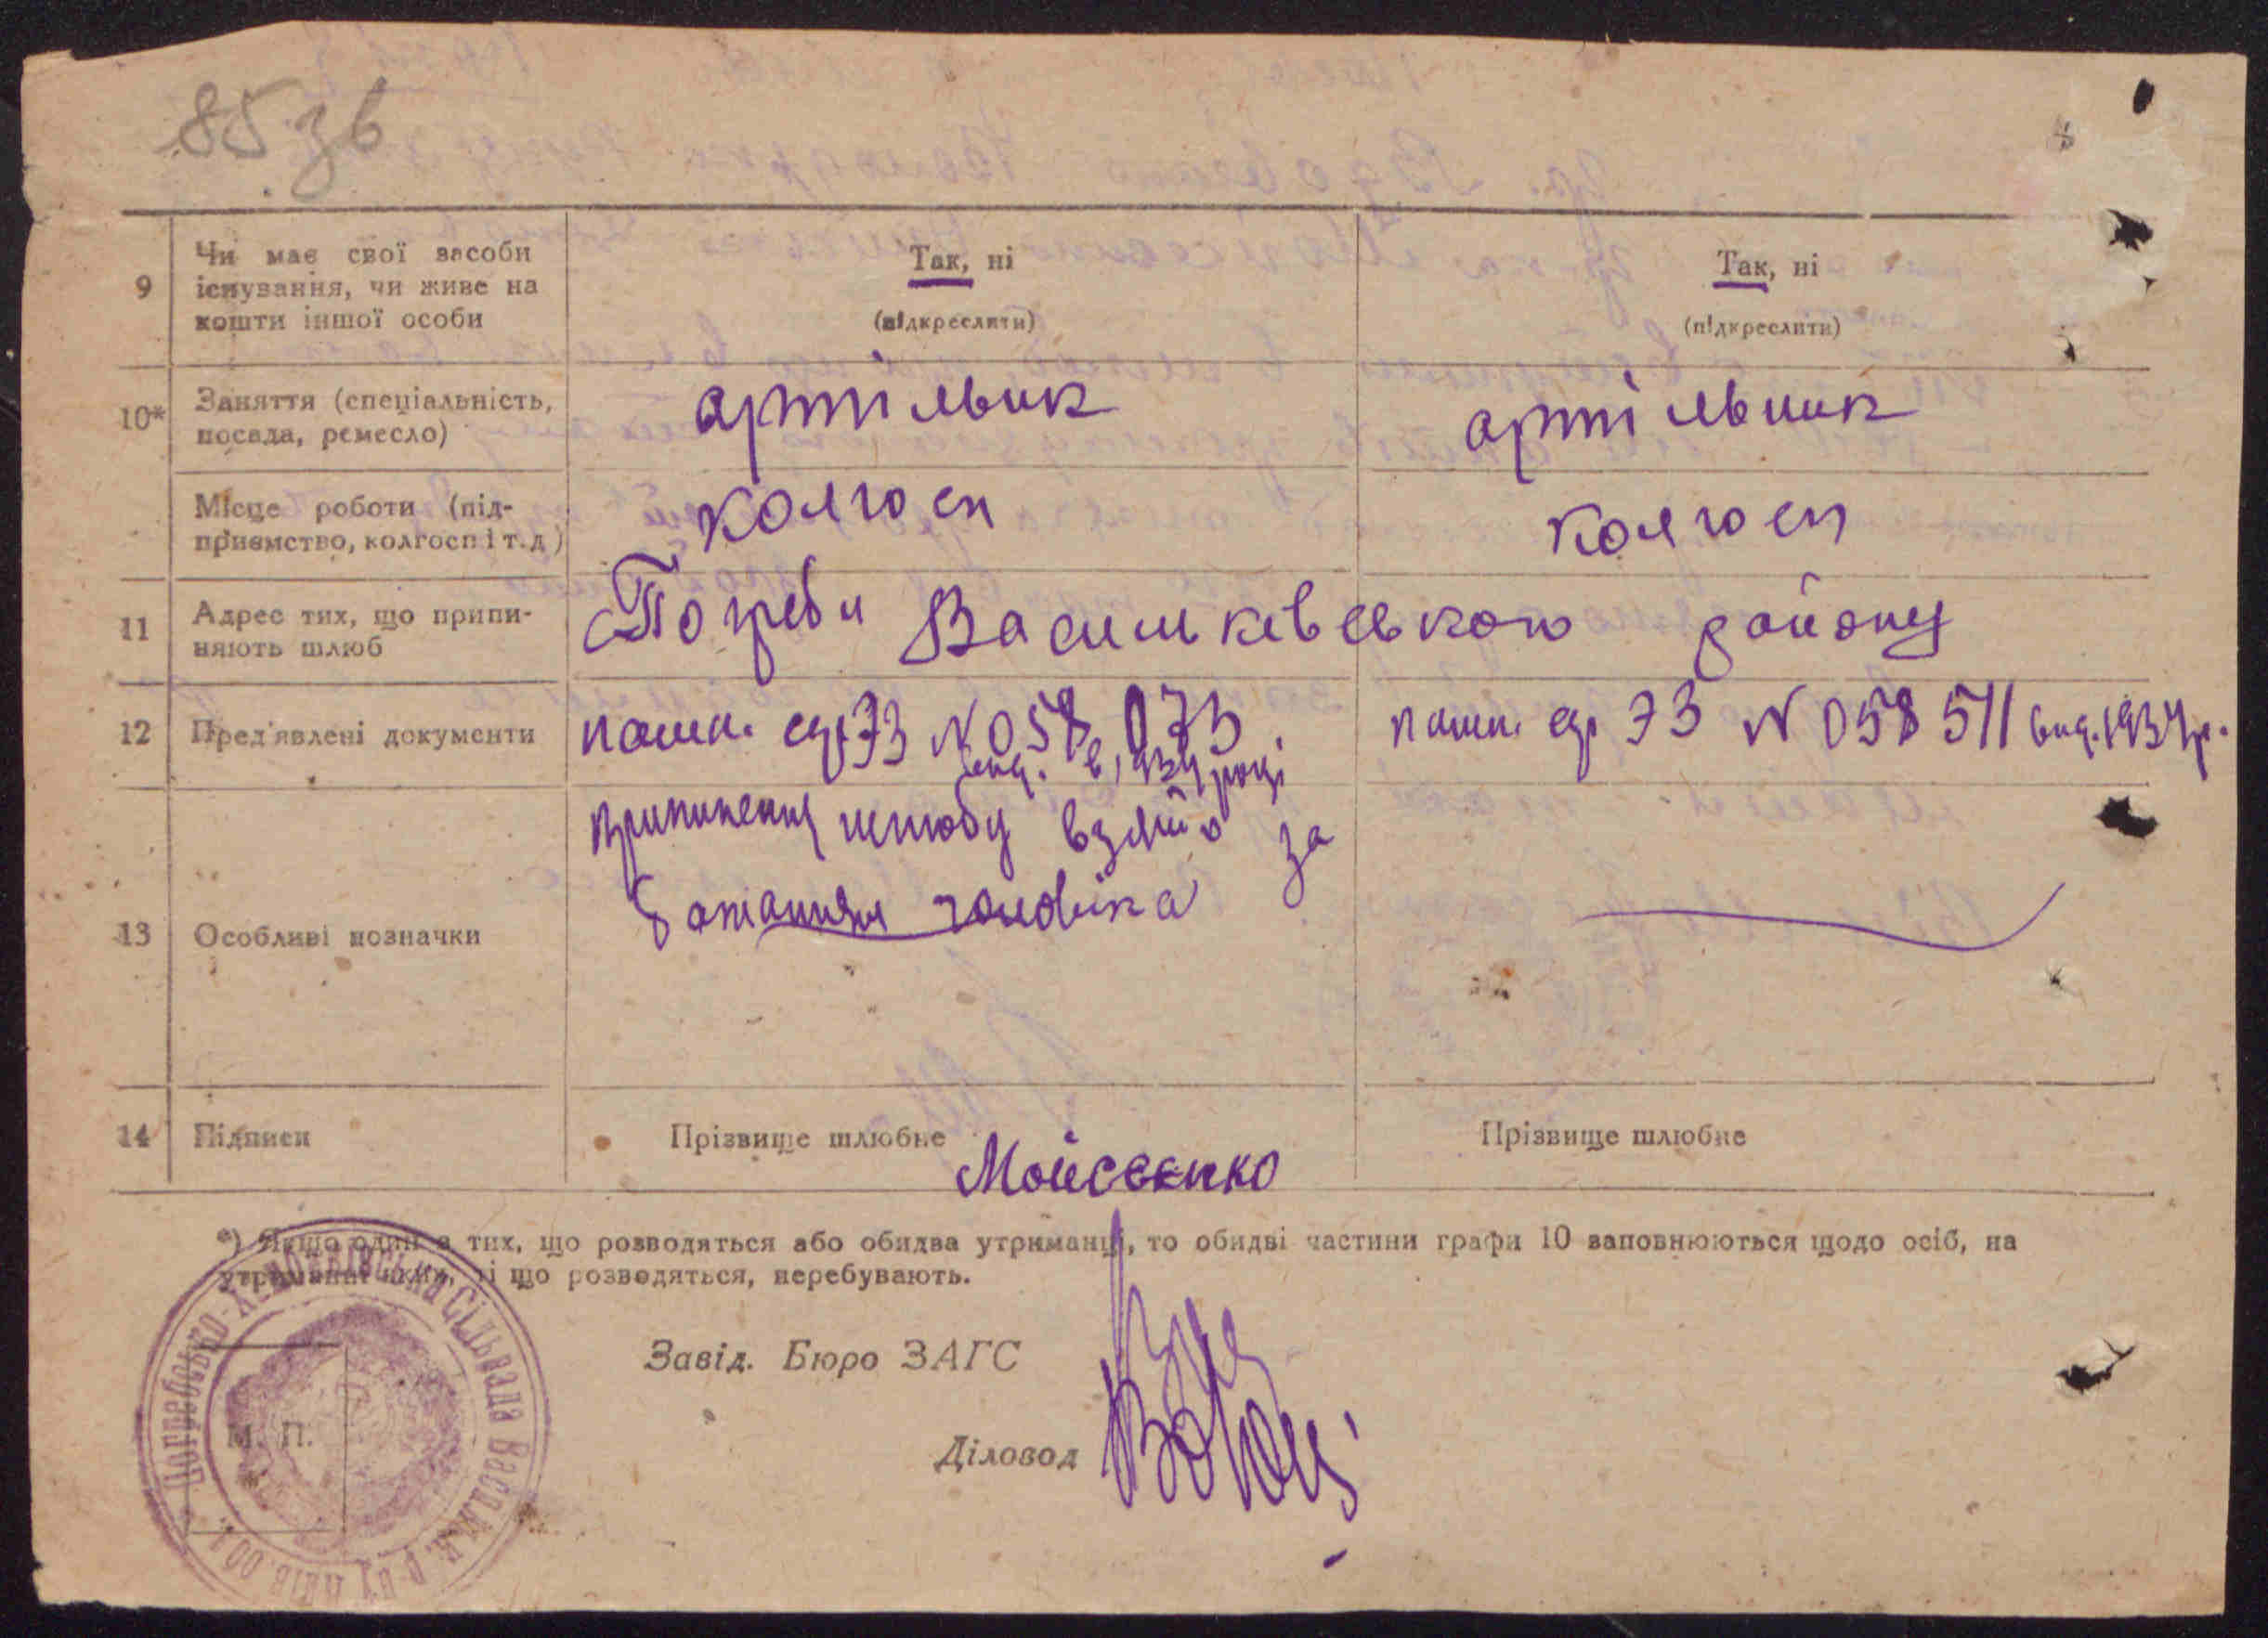 85 зв
9 Чи має свої засоби існування, чи живе на кошти іншої особи
Так, ні
(підкреслити)
Так, ні
(підкреслити)
10* Заняття (спеціальність, посада, ремесло)
артільник
артільник
Місце роботи (підприємство, колгосп і т.д)
колгосп
колгосп
11 Адрес тих, що припиняють шлюб
Погреби Васильківського району
12 Пред'явлені документи
пашп. ср 73 N 058 073
вид. в 1934 році
пашп. ср 73 N 058 511 вид. 1934 р.
13 Особливі позначки
припинення шлюбу взято за
бажанням чоловіка
14 Підписи
Прізвище шлюбне
Мойсеєнко
Прізвище шлюбне
*) Якщо один з тих, що розводяться або обидва утриманці, то обидві частини графи 10 заповнюються щодо осіб, на
утриманні яких, ті що розводяться, перебувають.
Завід. Бюро ЗАГС
Діловод
М. П.